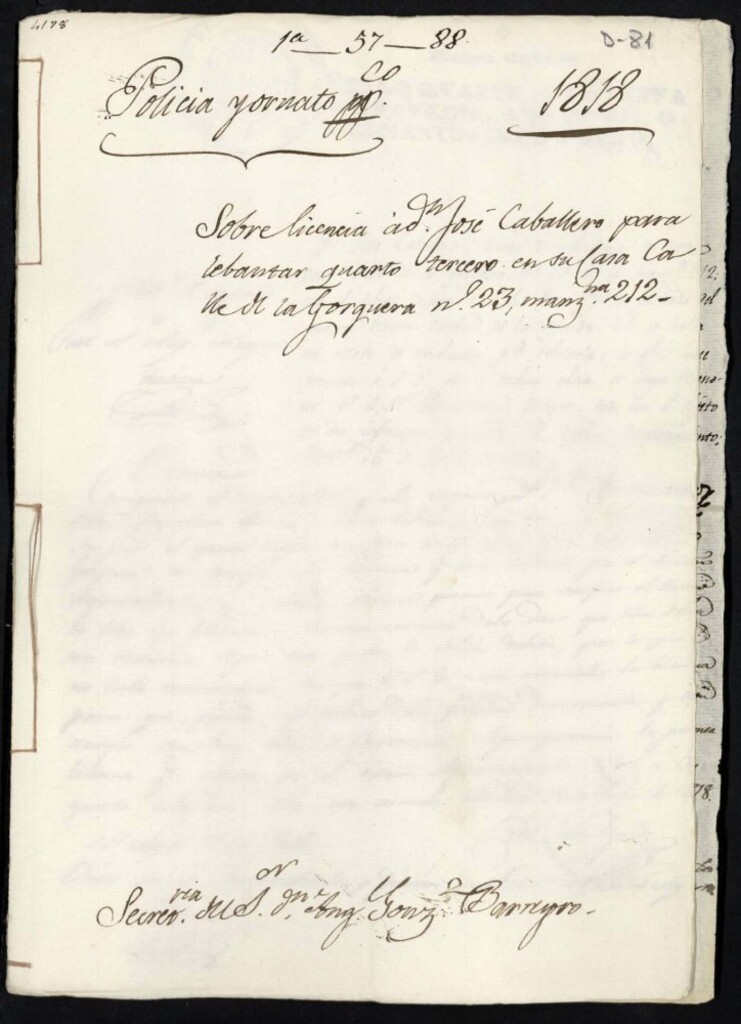 4178
1ª — 57 — 88
D-81
Policia y ornato pp.co
1818
Sobre licencia á dn. José Caballero para
lebantar quarto tercero en su Casa Ca
lle de la Gorguera nº. 23, manzna. 212-
Secretria. del Sor. dn. Angl. Gonzz. Barreyro-